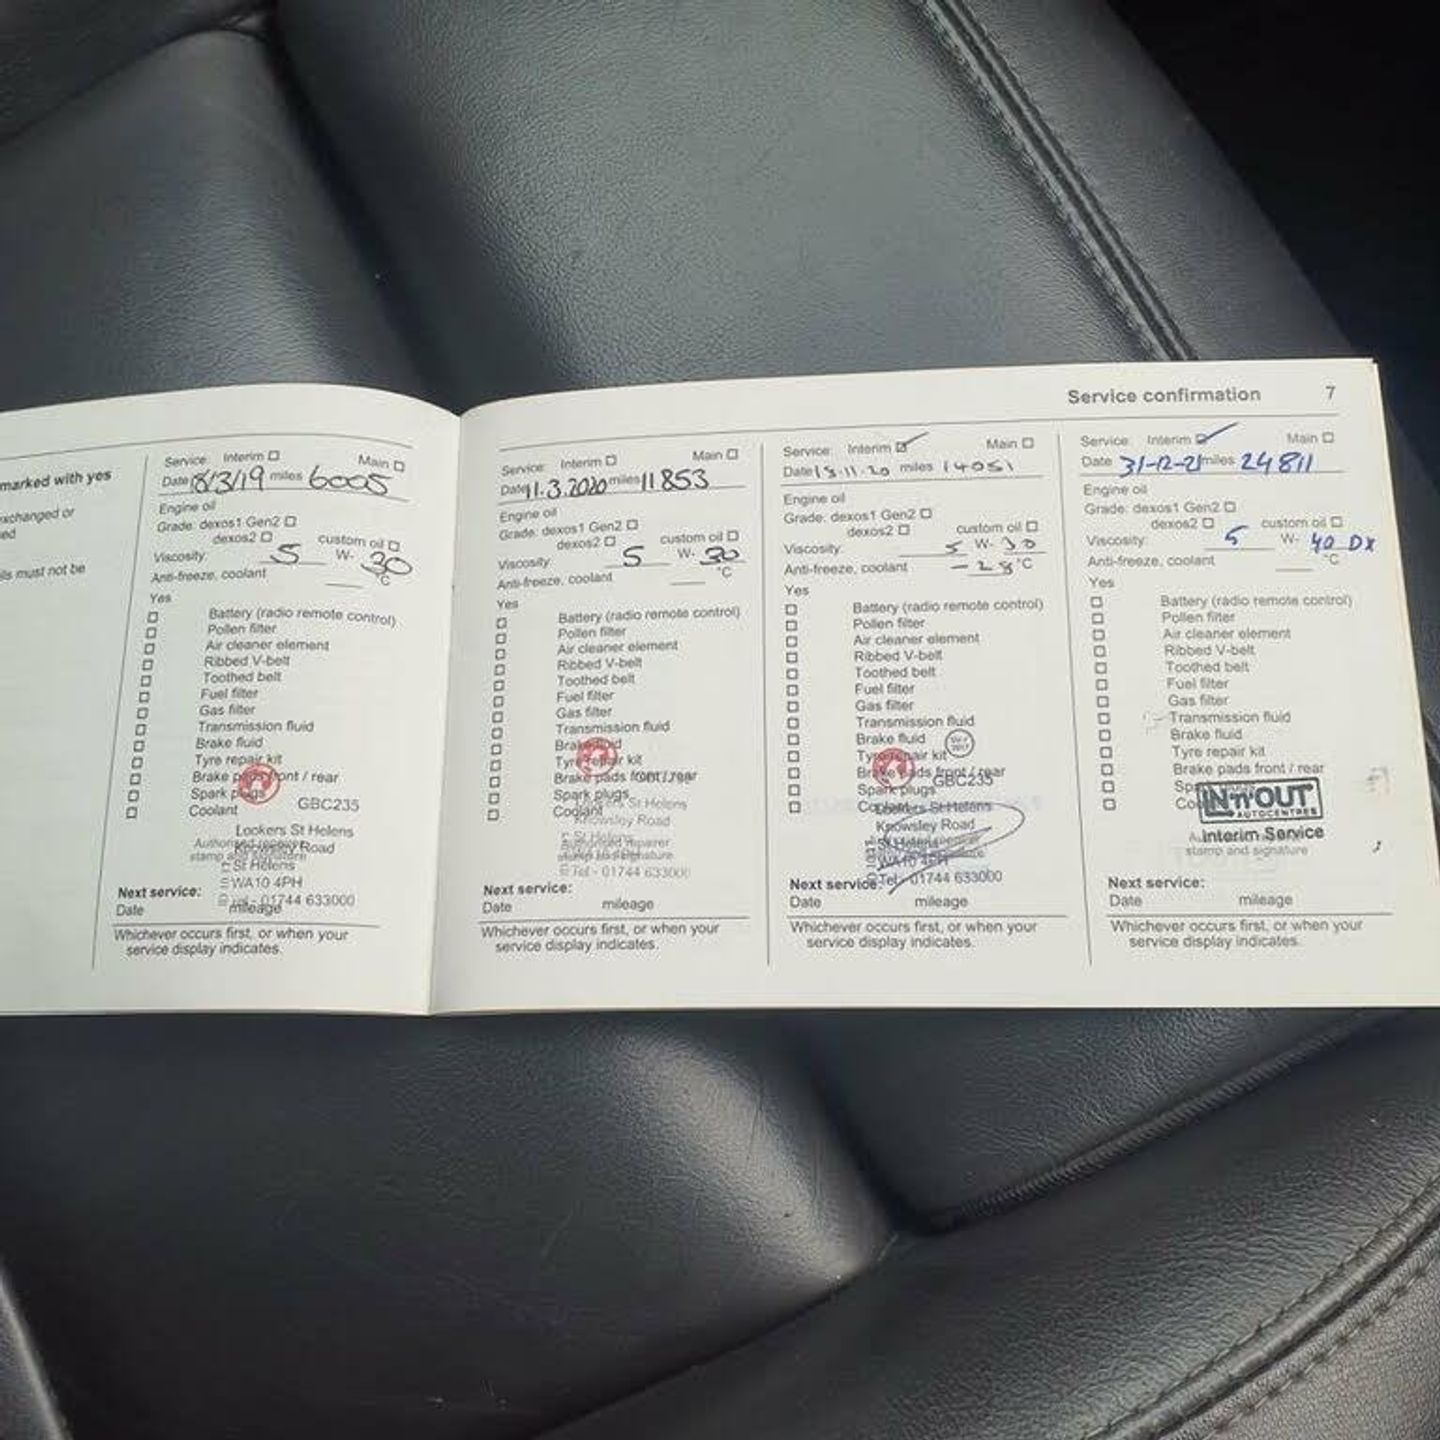 Service confirmation 7
marked with yes
exchanged or
ed
ils must not be
Service: Interim Main
Date 8/3/19 miles 6005
Engine oil
Grade: dexos1 Gen2
dexos2 custom oil
Viscosity: 5 W- 30
Anti-freeze, coolant °C
Yes
Battery (radio remote control)
Pollen filter
Air cleaner element
Ribbed V-belt
Toothed belt
Fuel filter
Gas filter
Transmission fluid
Brake fluid
Tyre repair kit
Brake pads front / rear
Spark plugs
Coolant GBC235
Lookers St Helens
Authorised repairer
Knowsley Road
stamp and signature
St Helens
WA10 4PH
Next service:
Tel - 01744 633000
Date mileage
Whichever occurs first, or when your
service display indicates.
Service: Interim Main
Date 11.3.2020 miles 11853
Engine oil
Grade: dexos1 Gen2
dexos2 custom oil
Viscosity: 5 W- 30
Anti-freeze, coolant °C
Yes
Battery (radio remote control)
Pollen filter
Air cleaner element
Ribbed V-belt
Toothed belt
Fuel filter
Gas filter
Transmission fluid
Brake fluid
Tyre repair kit
Brake pads front / rear
Spark plugs
Coolant
St Helens
Knowsley Road
St Helens
Authorised repairer
stamp and signature
Tel - 01744 633000
Next service:
Date mileage
Whichever occurs first, or when your
service display indicates.
Service: Interim Main
Date 13.11.20 miles 14051
Engine oil
Grade: dexos1 Gen2
dexos2 custom oil
Viscosity: 5 W- 30
Anti-freeze, coolant -28 °C
Yes
Battery (radio remote control)
Pollen filter
Air cleaner element
Ribbed V-belt
Toothed belt
Fuel filter
Gas filter
Transmission fluid
Brake fluid
Tyre repair kit
Brake pads front / rear
GBC235
Spark plugs
Coolant
Lookers St Helens
Knowsley Road
St Helens
WA10 4PH
Tel - 01744 633000
Next service:
Date mileage
Whichever occurs first, or when your
service display indicates.
Service: Interim Main
Date 31-12-21 miles 24811
Engine oil
Grade: dexos1 Gen2
dexos2 custom oil
Viscosity: 5 W- 40 DX
Anti-freeze, coolant °C
Yes
Battery (radio remote control)
Pollen filter
Air cleaner element
Ribbed V-belt
Toothed belt
Fuel filter
Gas filter
Transmission fluid
Brake fluid
Tyre repair kit
Brake pads front / rear
IN'n'OUT
AUTOCENTRES
Interim Service
stamp and signature
Next service:
Date mileage
Whichever occurs first, or when your
service display indicates.